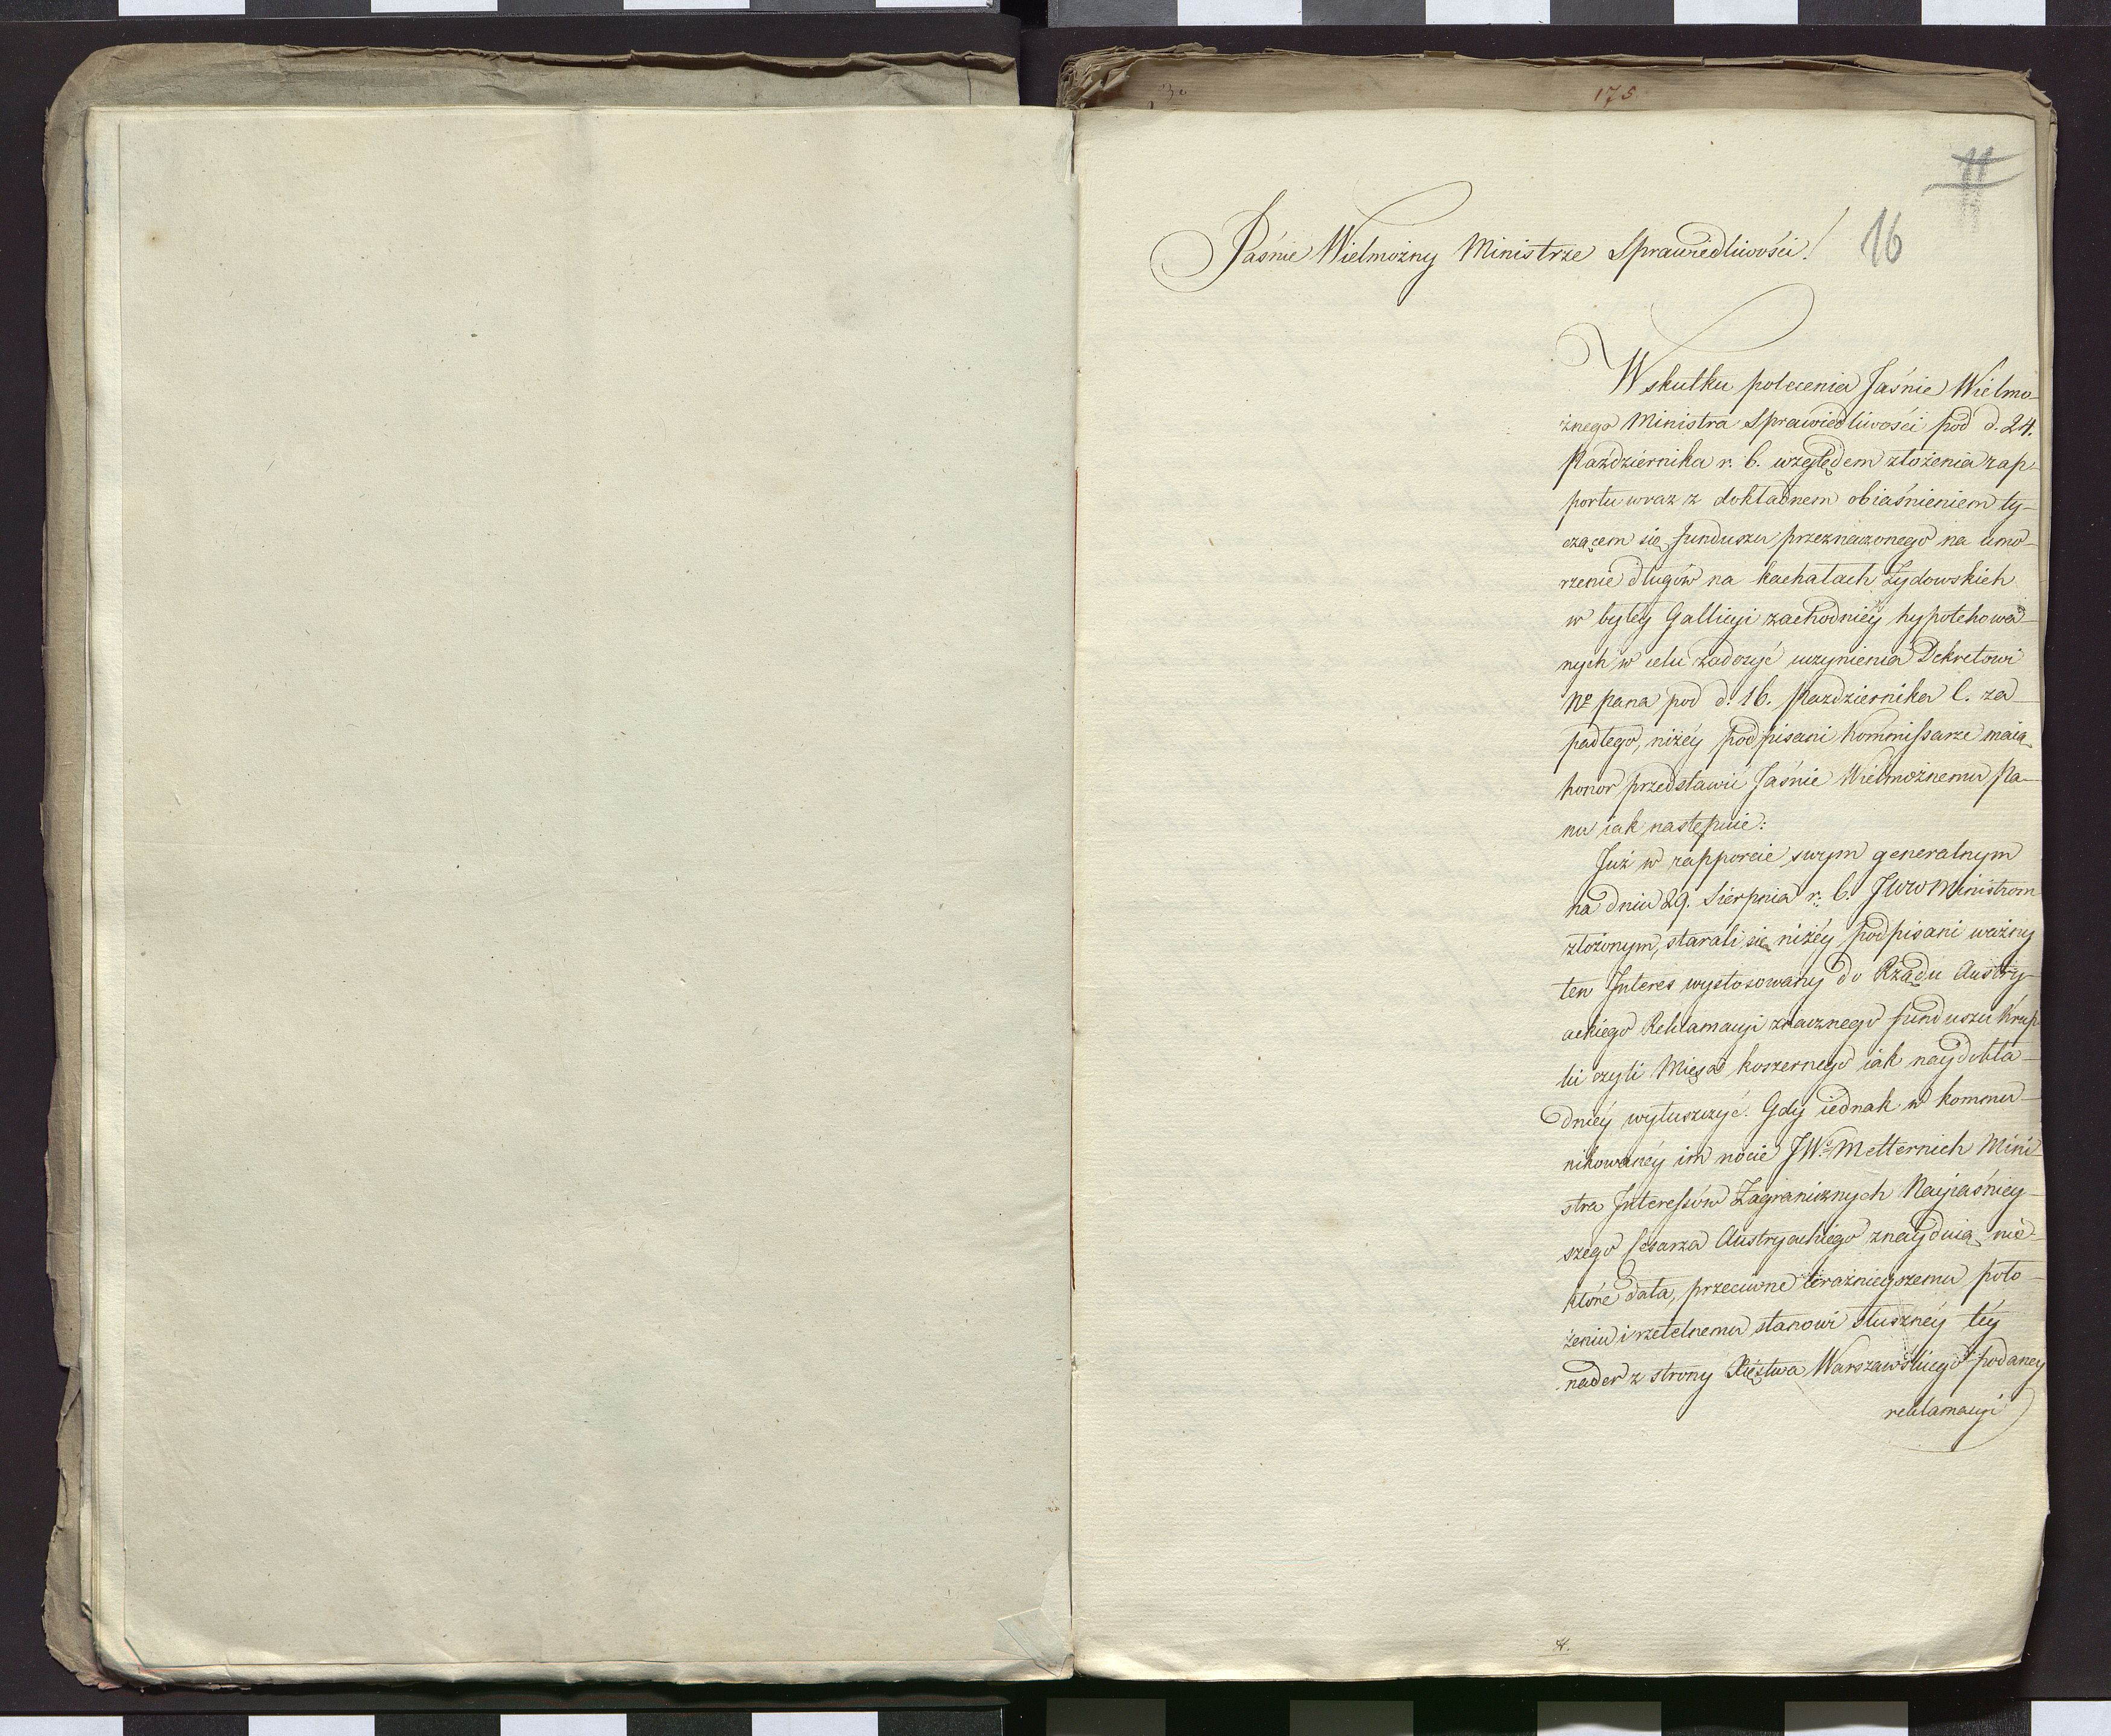 175
11
16
Jaśnie Wielmożny Ministrze Sprawiedliwości!
W skutku polecenia Jaśnie Wielmo-
żnego Ministra Sprawiedliwości pod d. 24.
Października r. b. względem złożenia rap-
portu wraz z dokładnem obiaśnieniem ty-
czącem się funduszu przeznaczonego na umo-
rzenie długów na kachałach Żydowskich
w byłéy Gallicyi zachodniéy hypotekowa-
nych w celu zadosyć uczynienia Dekretowi
Nº pana pod d. 16. Października l. za-
padłego, niżéy podpisani Kommissarze maią
honor przedstawić Jaśnie Wielmożnemu Pa-
nu iak następuie:
Już w rapporcie swym generalnym
na dniu 29. Sierpnia r. b. JWW Ministrom
złożonym, starali się niżéy podpisani ważny
ten Interes wystosowany do Rządu Austry-
ackiego Reklamacyi znacznego funduszu Krup-
ki czyli Mięsa koszernego iak naydokła-
dniéy wyłuszczyć. Gdy iednak w kommu-
nikowanéy im nocie JWº Metternich Mini-
stra Interessów Zagranicznych Nayiaśniey-
szego Cesarza Austryackiego znayduią nie-
które data, przeciwne teraźnieyszemu poło-
żeniu i rzetelnemu stanowi słusznéy téy
nader z strony Xięstwa Warszawskiego podanéy
reklamacyi